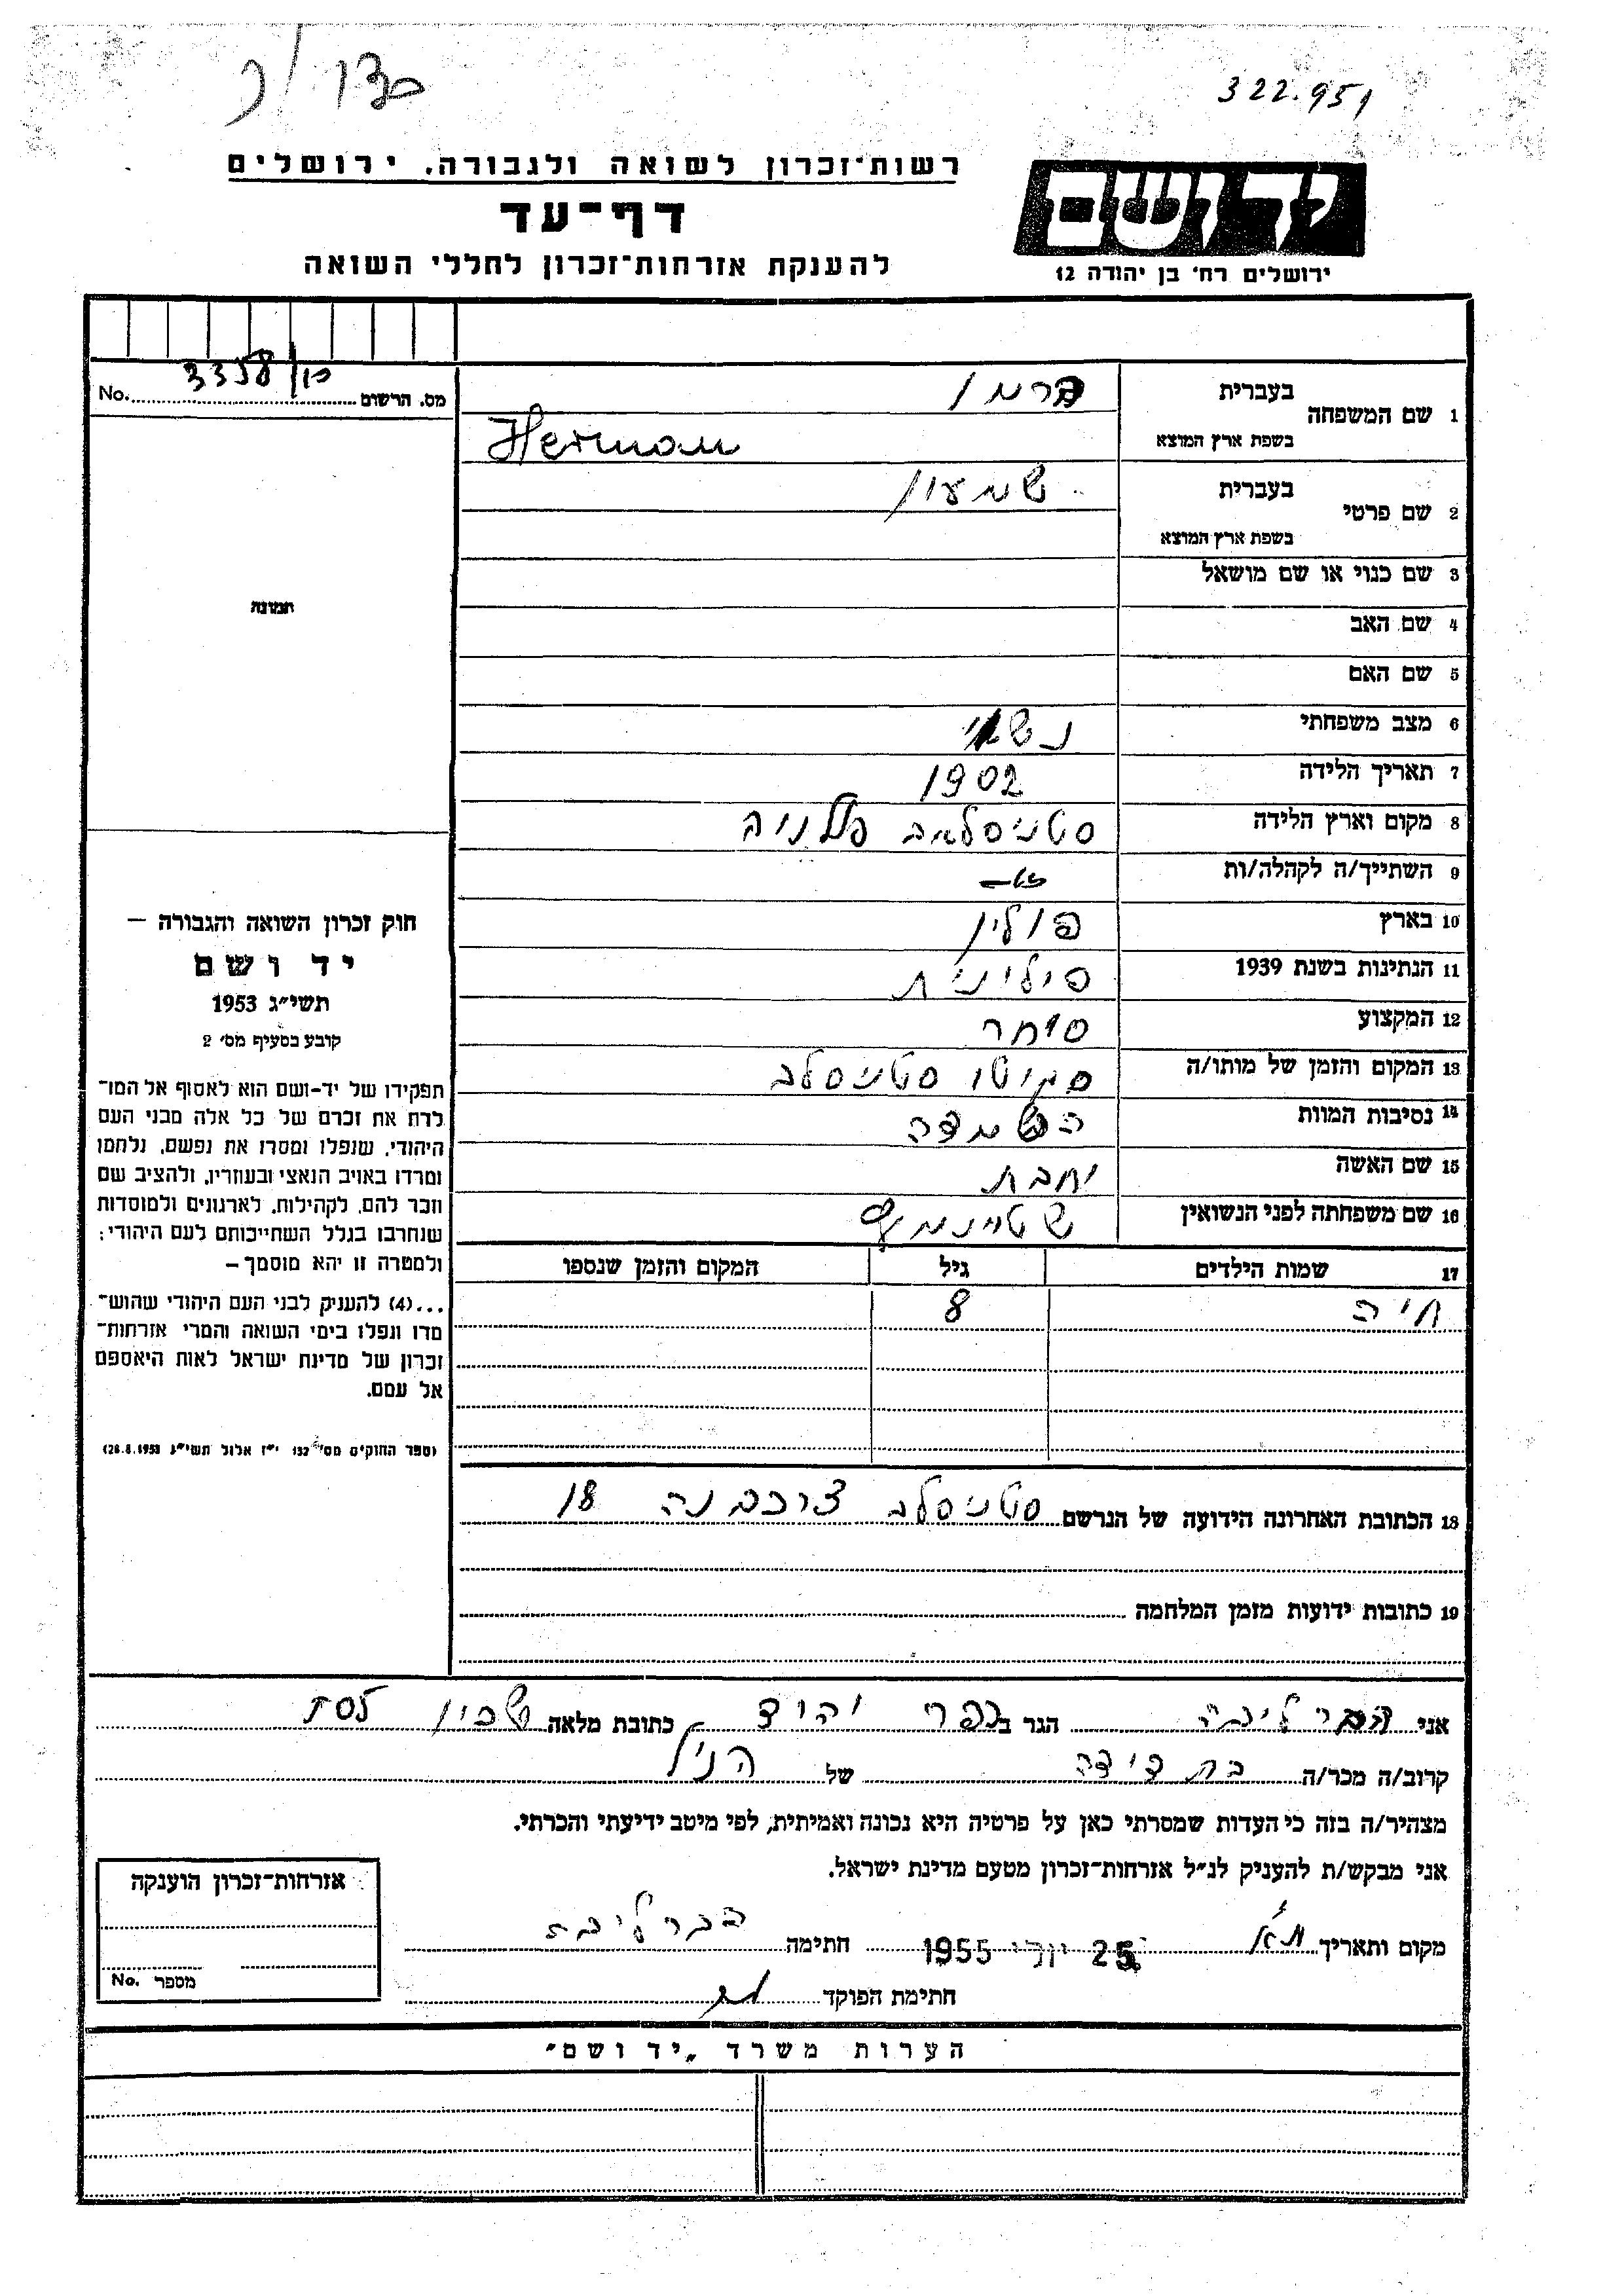 322.951
רשות־זכרון לשואה ולגבורה. ירושלים
דף־עד
להענקת אזרחות־זכרון לחללי השואה
יד ושם
ירושלים רח' בן יהודה 12
מס. הרשום 3358/10 No.
1 שם המשפחה
בעברית הרמן
בשפת ארץ המוצא Herman
2 שם פרטי
בעברית שמעון
בשפת ארץ המוצא
3 שם כנוי או שם מושאל
4 שם האב
5 שם האם
6 מצב משפחתי נשוי
7 תאריך הלידה 1902
8 מקום וארץ הלידה סטניסלאב פולניה
9 השתייך/ה לקהלה/ות
10 בארץ פולין
11 הנתינות בשנת 1939 פולנית
12 המקצוע סוחר
13 המקום והזמן של מותו/ה סטניסלב
14 נסיבות המוות השמדה
15 שם האשה
16 שם משפחתה לפני הנשואין
17 שמות הילדים גיל המקום והזמן שנספו
חיה 8
18 הכתובת האחרונה הידועה של הנרשם סטניסלב 18
19 כתובות ידועות מזמן המלחמה
תמונה
חוק זכרון השואה והגבורה —
יד ושם
תשי״ג 1953
קובע בסעיף מס' 2
תפקידו של יד-ושם הוא לאסוף אל המו־
לדת את זכרם של כל אלה מבני העם
היהודי, שנפלו ומסרו את נפשם, נלחמו
ומרדו באויב הנאצי ובעוזריו, ולהציב שם
וזכר להם, לקהילות, לארגונים ולמוסדות
שנחרבו בגלל השתייכותם לעם היהודי;
ולמטרה זו יהא מוסמך —
...(4) להעניק לבני העם היהודי שהוש־
מדו ונפלו בימי השואה והמרי אזרחות־
זכרון של מדינת ישראל לאות היאספם
אל עמם.
(ספר החוקים מס' 132 י״ז אלול תשי״ג 28.8.1953)
אני הגר ב כפר יהוד כתובת מלאה שכון
קרוב/ה מכר/ה בת דודה של הנ״ל
מצהיר/ה בזה כי העדות שמסרתי כאן על פרטיה היא נכונה ואמיתית, לפי מיטב ידיעתי והכרתי.
אני מבקש/ת להעניק לנ״ל אזרחות־זכרון מטעם מדינת ישראל.
מקום ותאריך ת״א 25 יוני 1955 חתימה
חתימת הפוקד
אזרחות־זכרון הוענקה
מספר No.
הערות משרד „יד ושם״